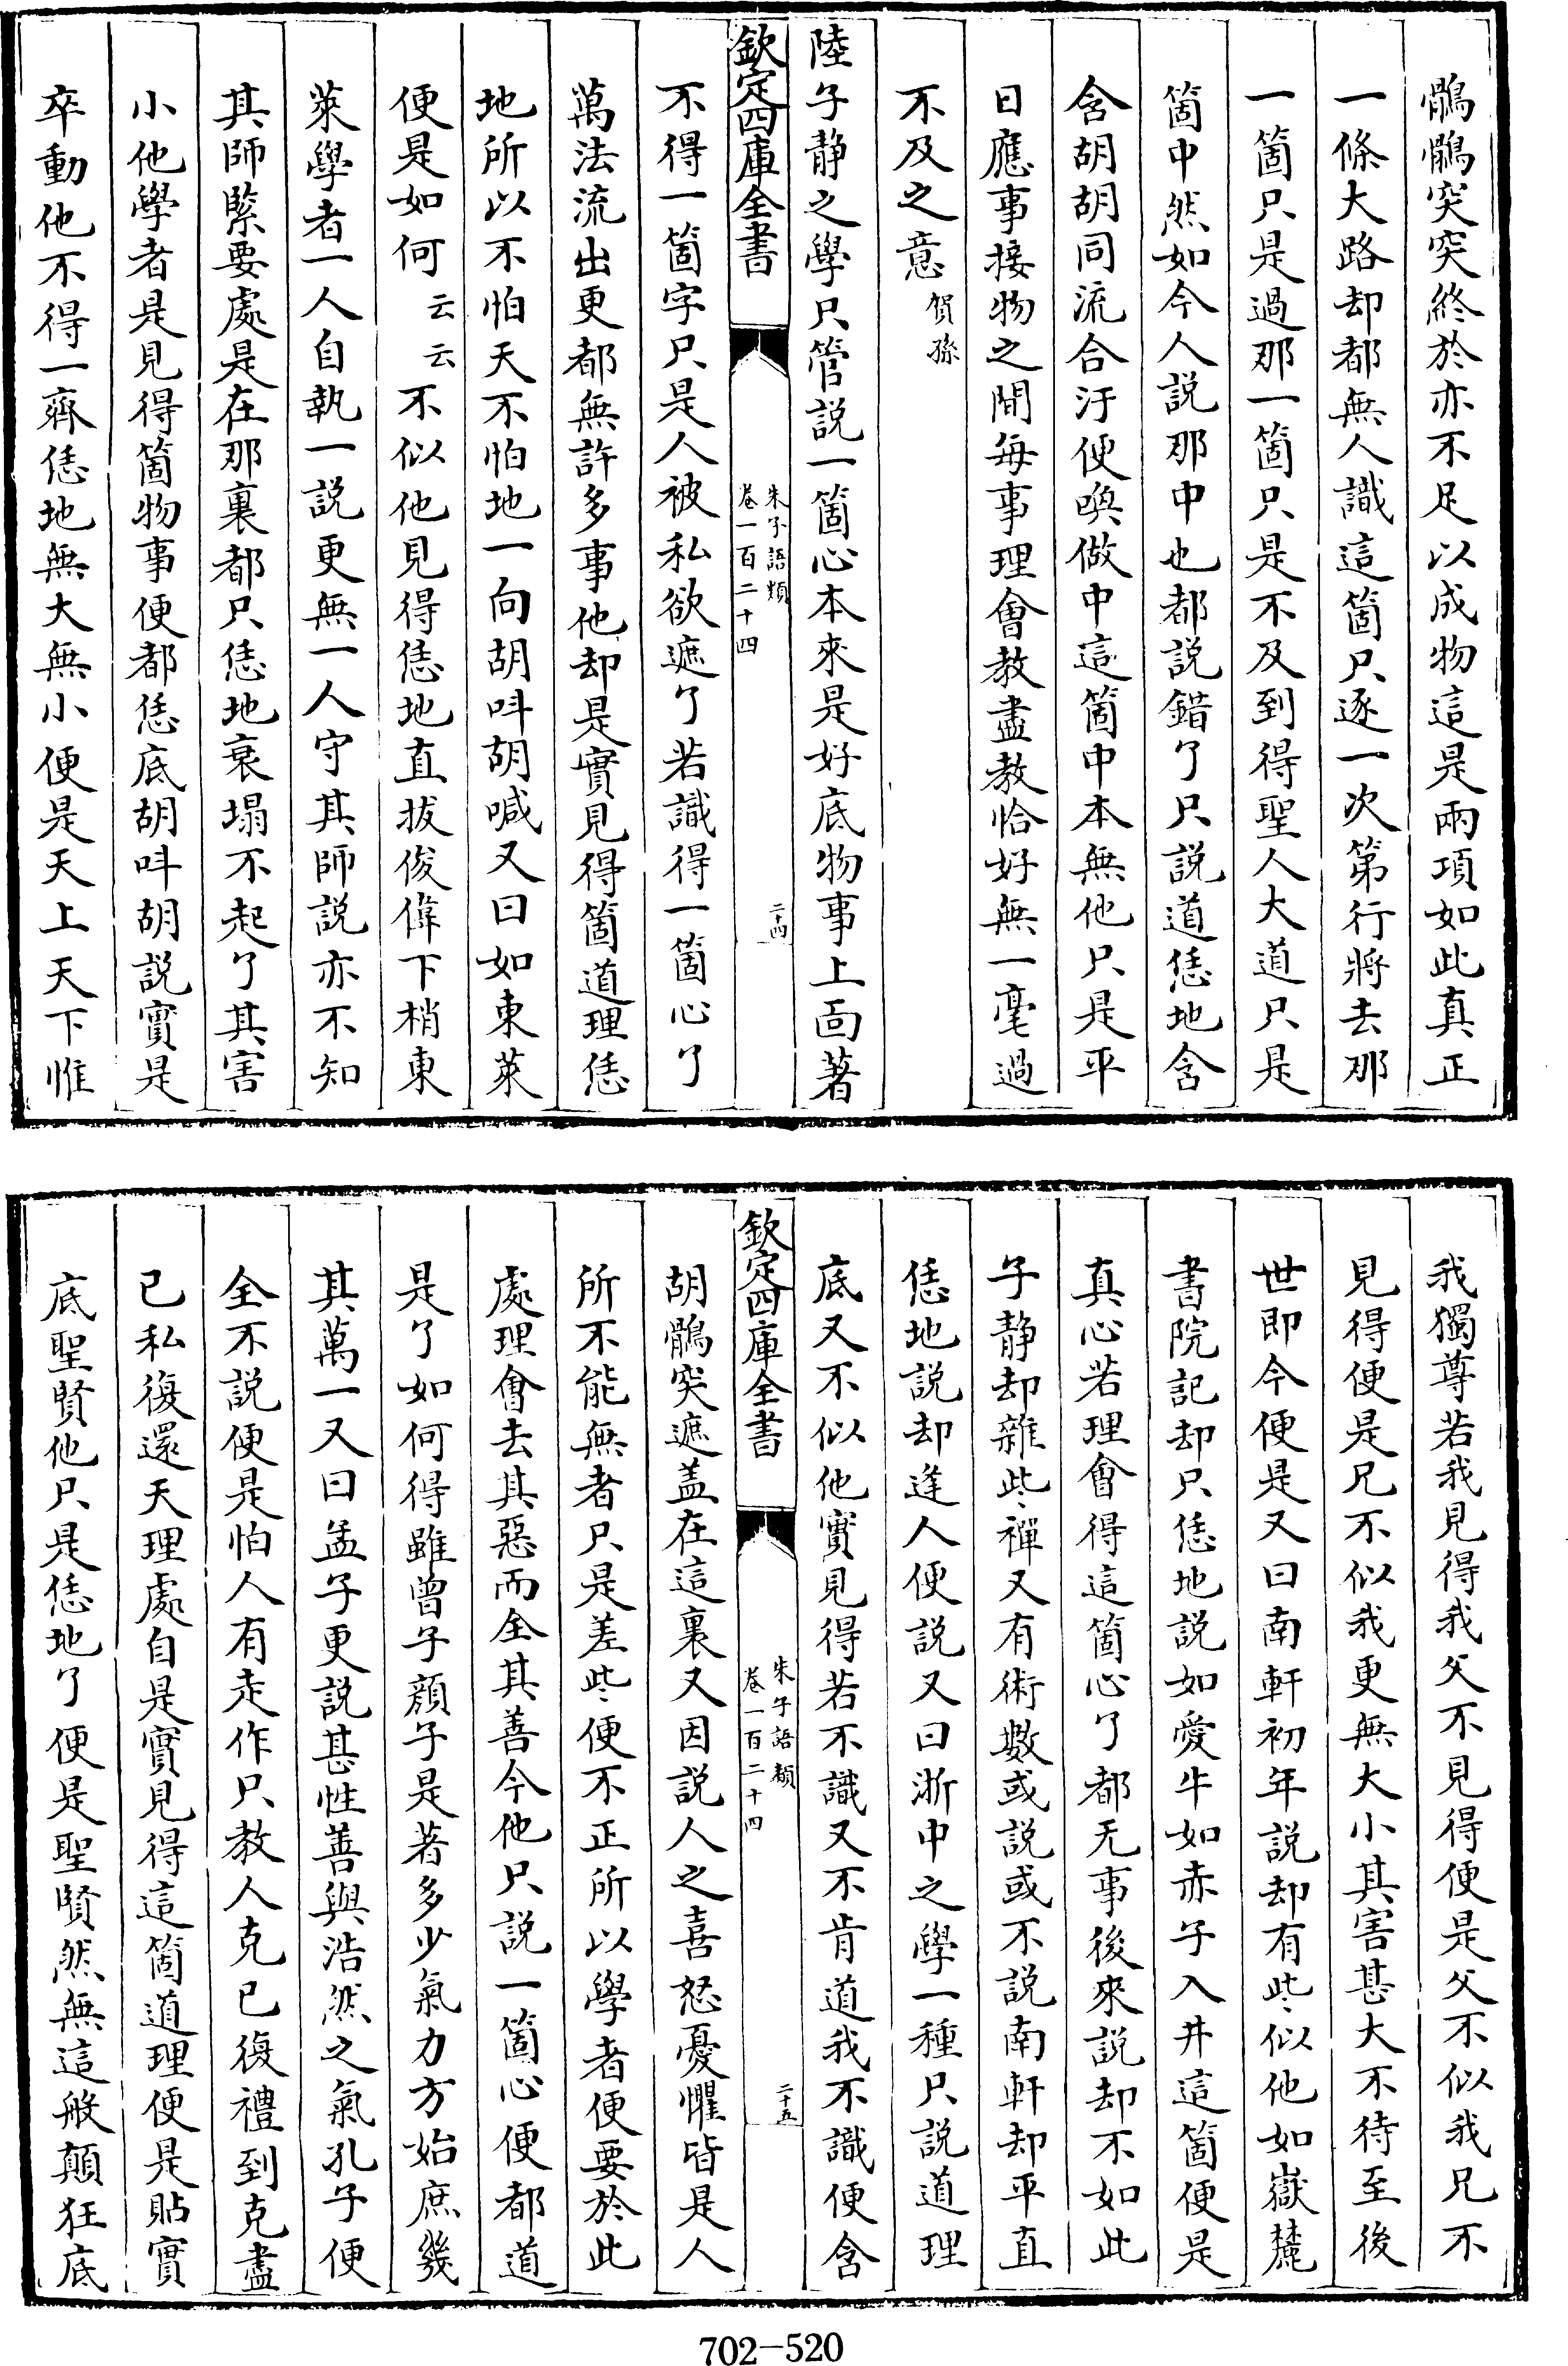 鶻鶻突突終於亦不足以成物這是兩項如此真正
一條大路却都無人識這箇只逐一次第行將去那
一箇只是過那一箇只是不及到得聖人大道只是
箇中然如今人説那中也都説錯了只説道恁地含
含胡胡同流合汙便喚做中這箇中本無他只是平
日應事接物之間每事理會教盡教恰好無一毫過
不及之意賀孫
陸子静之學只管説一箇心本來是好底物事上靣著
欽定四庫全書
朱子語類
卷一百二十四
二十四
不得一箇字只是人被私欲遮了若識得一箇心了
萬法流出更都無許多事他却是實見得箇道理恁
地所以不怕天不怕地一向胡呌胡喊又曰如東萊
便是如何云云不似他見得恁地直拔俊偉下梢東
萊學者一人自執一説更無一人守其師説亦不知
其師緊要處是在那裏都只恁地衰塌不起了其害
小他學者是見得箇物事便都恁底胡呌胡説實是
卒動他不得一齊恁地無大無小便是天上天下惟
我獨尊若我見得我父不見得便是父不似我兄不
見得便是兄不似我更無大小其害甚大不待至後
世即今便是又曰南軒初年説却有些似他如嶽麓
書院記却只恁地説如愛牛如赤子入井這箇便是
真心若理會得這箇心了都无事後來説却不如此
子静却雜些禪又有術數或説或不説南軒却平直
恁地説却逢人便説又曰浙中之學一種只説道理
底又不似他實見得若不識又不肯道我不識便含
欽定四庫全書
朱子語類
卷一百二十四
二十五
胡鶻突遮盖在這裏又因説人之喜怒憂懼皆是人
所不能無者只是差些便不正所以學者便要於此
處理會去其惡而全其善今他只説一箇心便都道
是了如何得雖曾子顔子是著多少氣力方始庶幾
其萬一又曰孟子更説甚性善與浩然之氣孔子便
全不説便是怕人有走作只教人克已復禮到克盡
已私復還天理處自是實見得這箇道理便是貼實
底聖賢他只是恁地了便是聖賢然無這般顛狂底
702-520